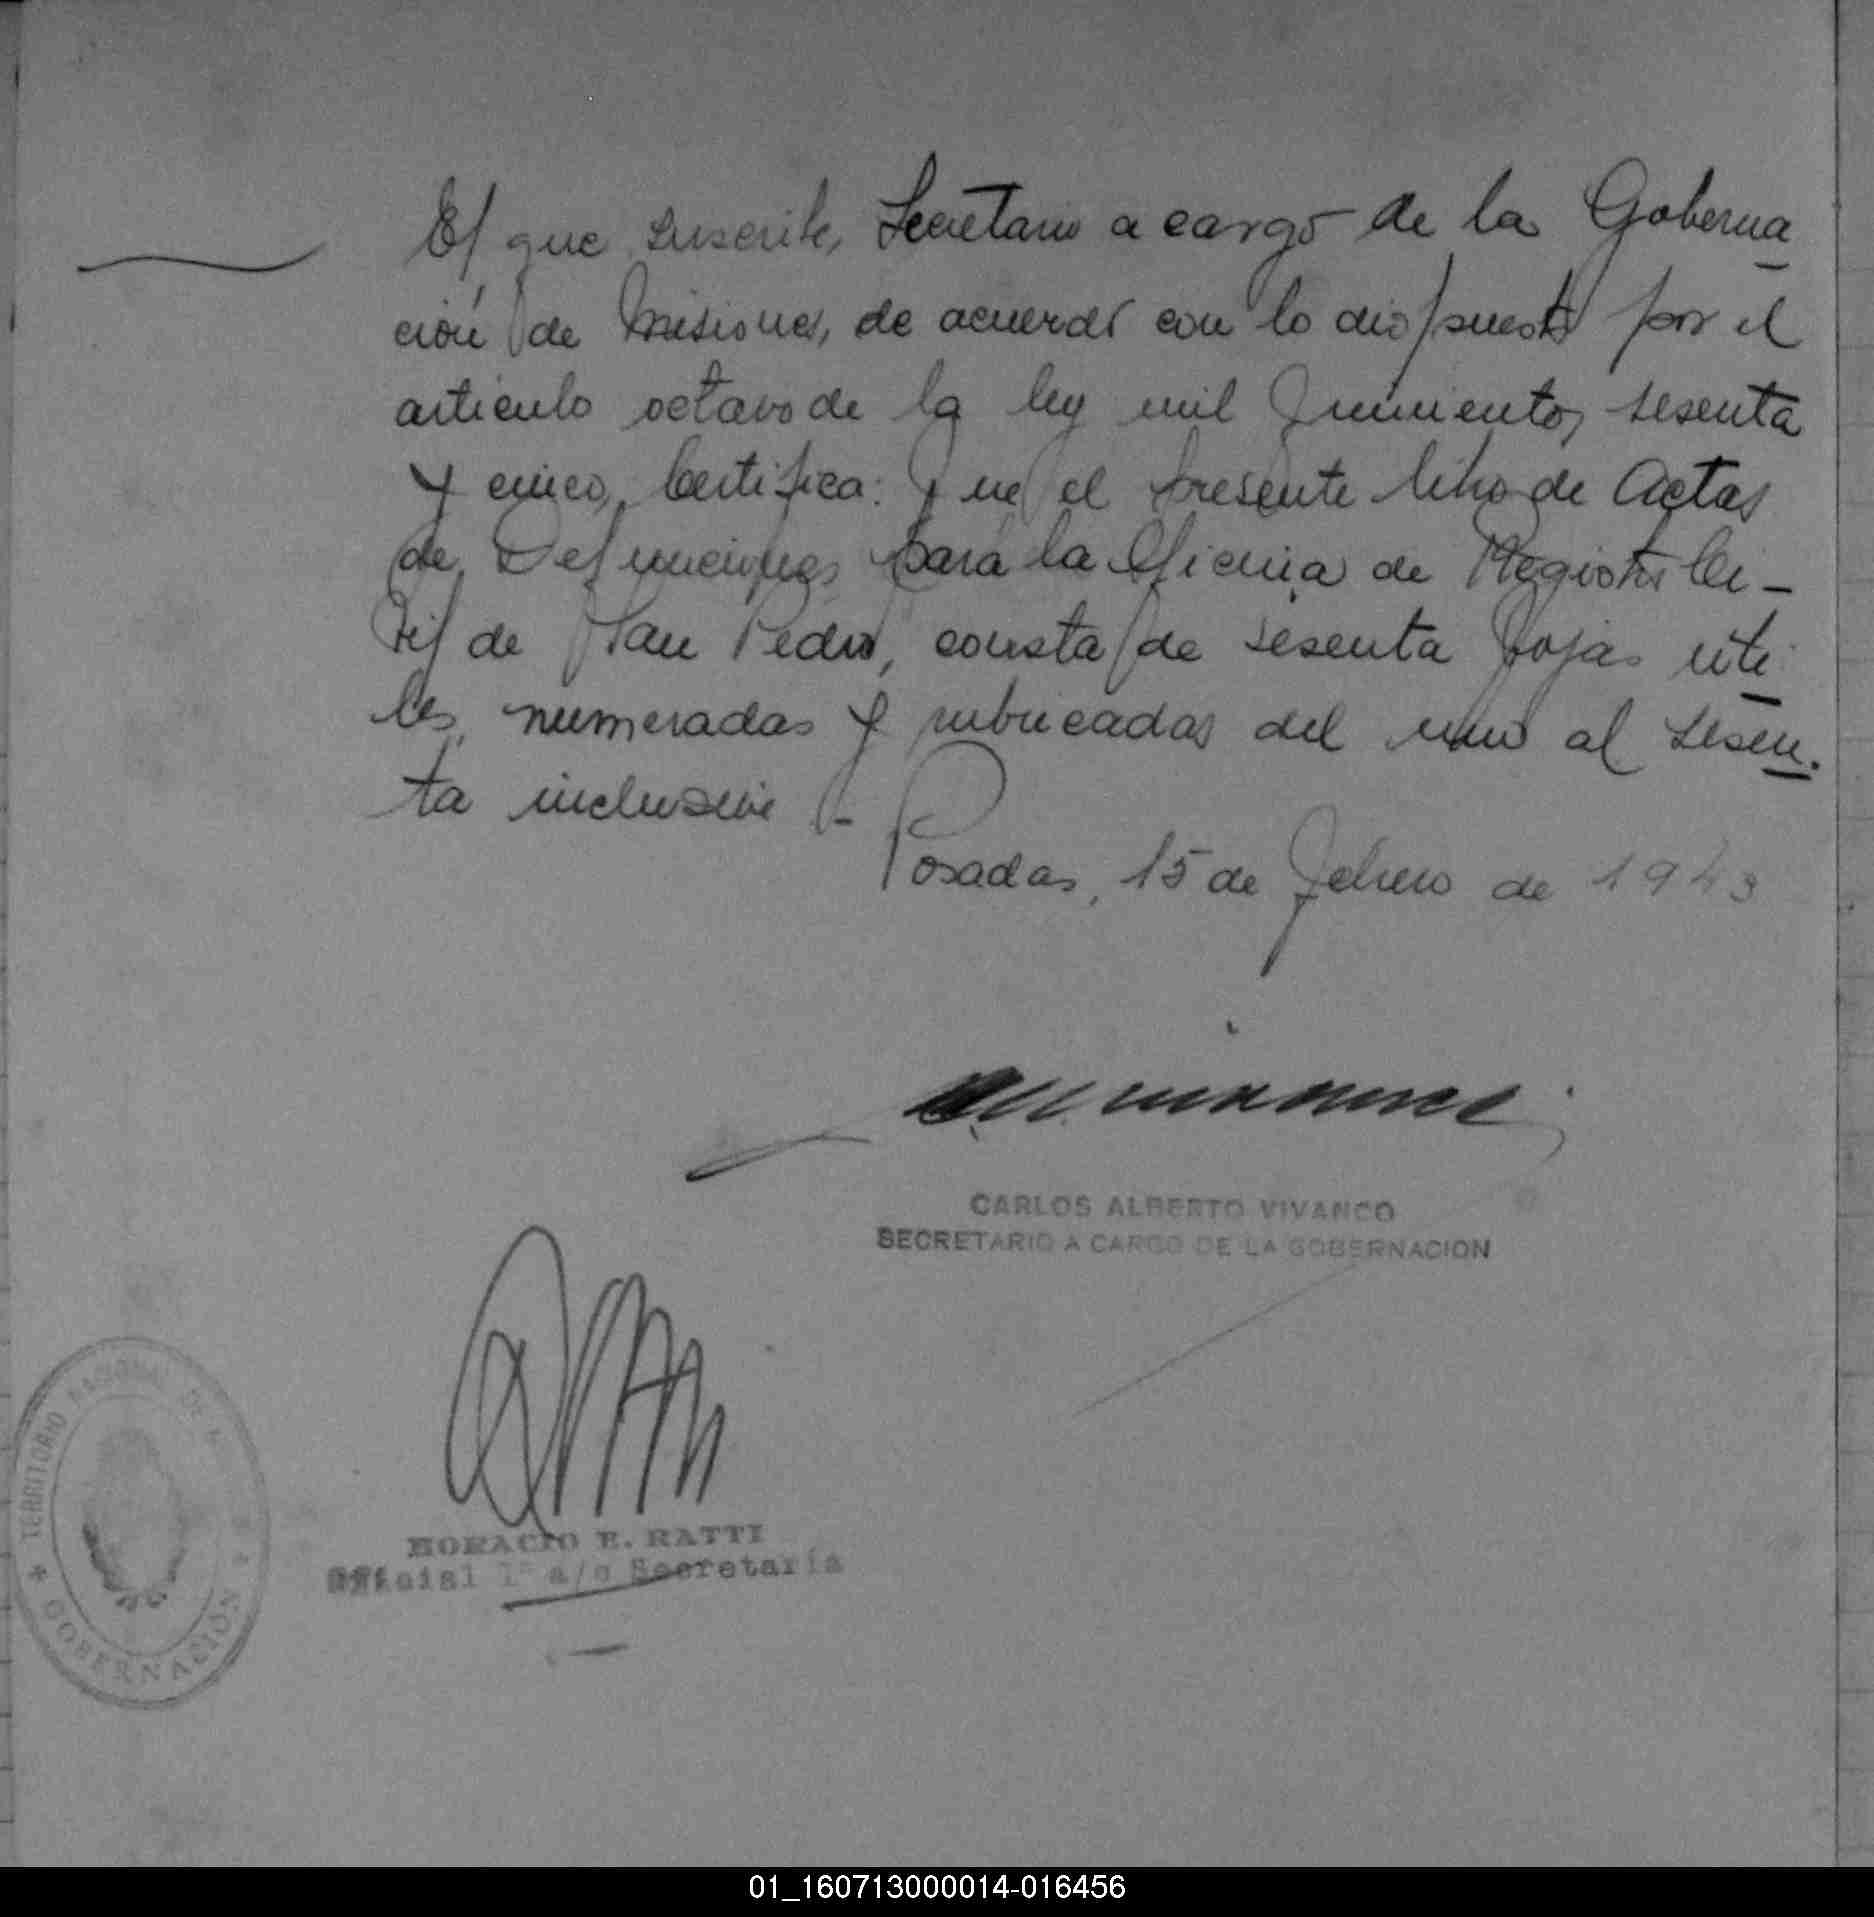 El que suscribe, Secretario a cargo de la Goberna
ción de Misiones, de acuerdo con lo dispuesto por el
artículo octavo de la ley mil quinientos sesenta
y cinco, Certifica: Que el presente libro de Actas
de Defunciones para la Oficina de Registro Ci-
vil de San Pedro, consta de sesenta fojas úti
les, numeradas y rubricadas del uno al sesen-
ta inclusive.-
Posadas, 15 de Febrero de 1943
CARLOS ALBERTO VIVANCO
SECRETARIO A CARGO DE LA GOBERNACION
HORACIO E. RATTI
Oficial 1º a/c Secretaría
TERRITORIO NACIONAL DE
GOBERNACIÓN
01_160713000014-016456